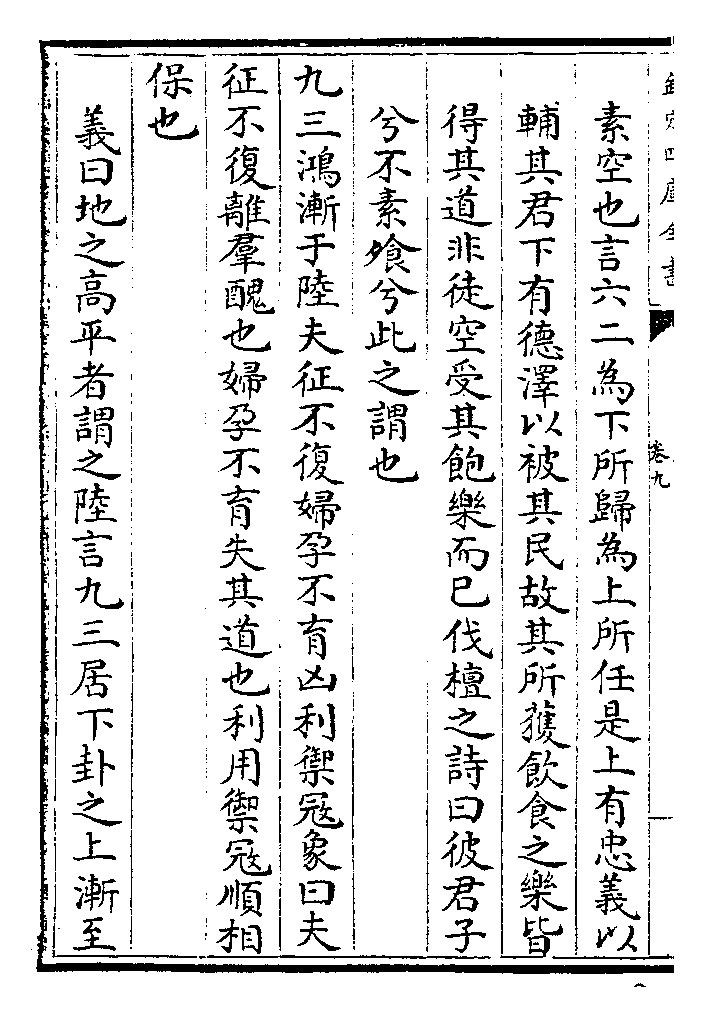 欽定四庫全書
卷九
素空也言六二為下所歸為上所任是上有忠義以
輔其君下有德澤以被其民故其所獲飲食之樂皆
得其道非徒空受其飽樂而已伐檀之詩曰彼君子
兮不素飧兮此之謂也
九三鴻漸于陸夫征不復婦孕不育凶利禦寇象曰夫
征不復離羣醜也婦孕不育失其道也利用禦寇順相
保也
義曰地之高平者謂之陸言九三居下卦之上漸至